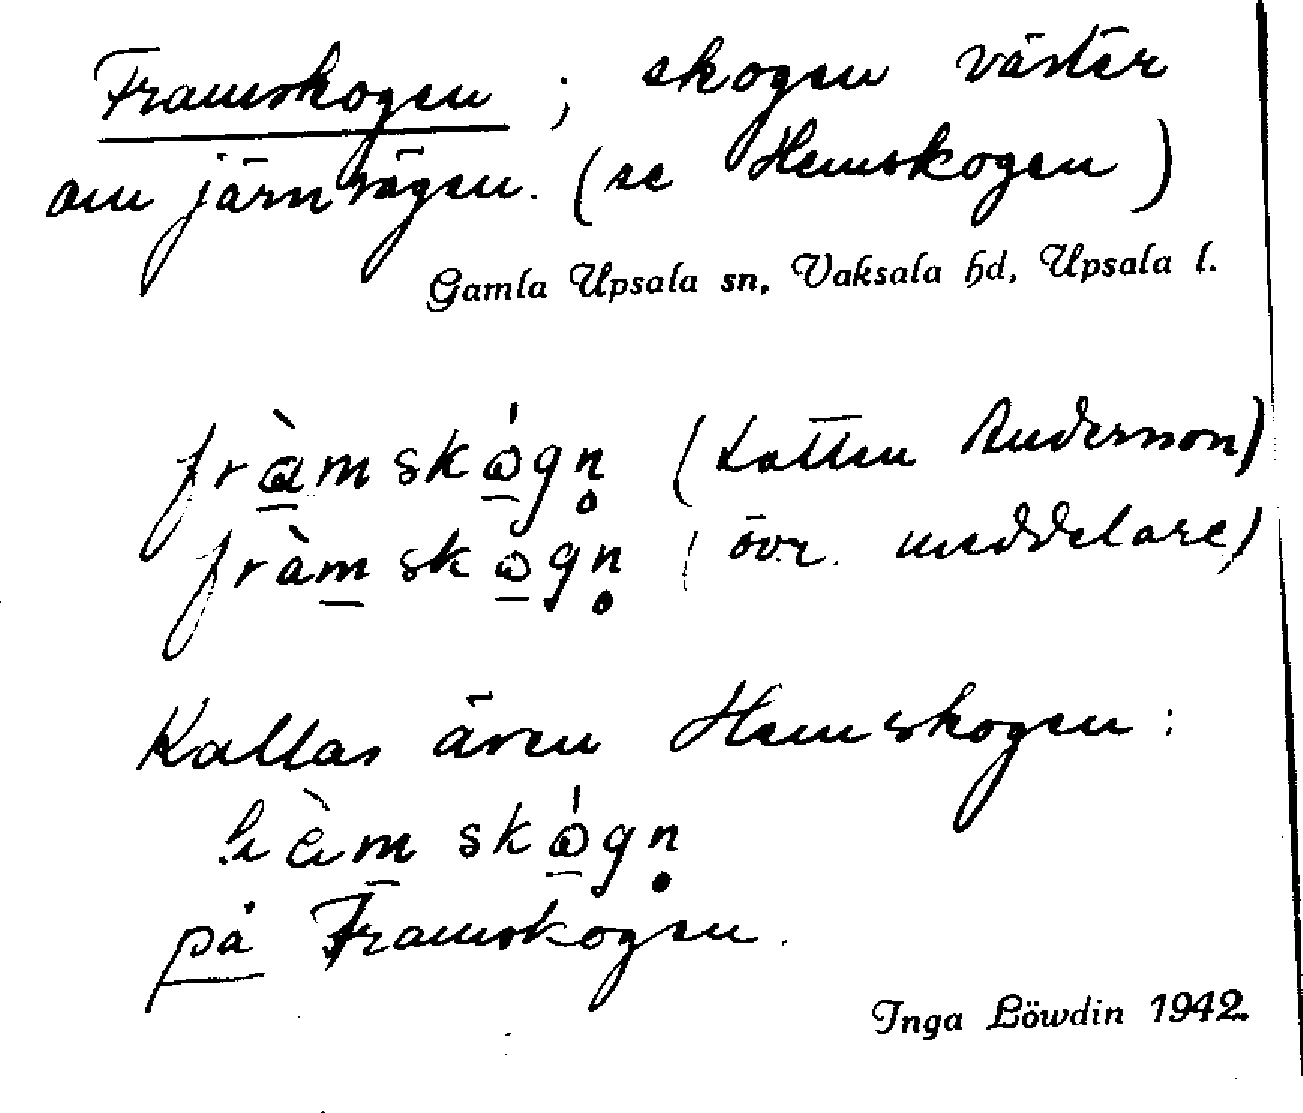 Framskogen ; skogen väster
om järnvägen. (se Hemskogen)
Gamla Upsala sn, Vaksala hd, Upsala l.
fràmskɷ́gn̥ (Lotten Anderson)
fràmskɷgn̥ (övr. meddelare)
Kallas även Hemskogen :
hèmskɷ́gn̥
på Framskogen.
Inga Löwdin 1942.